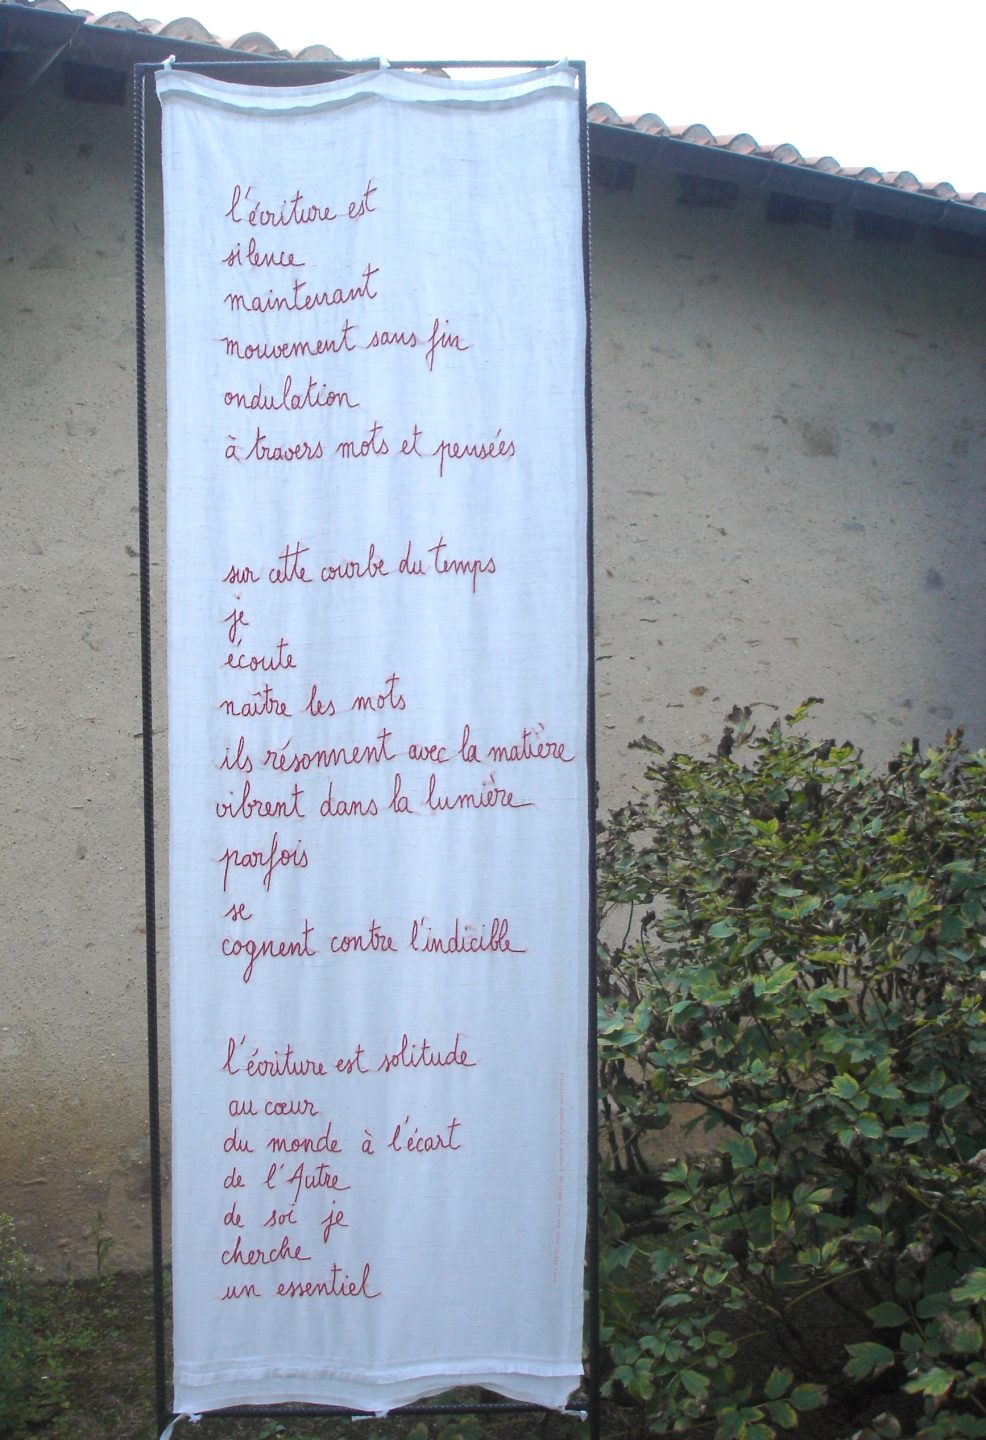 l'écriture est
silence
maintenant
mouvement sans fin
ondulation
à travers mots et pensées
sur cette courbe du temps
je
écoute
naître les mots
ils résonnent avec la matière
vibrent dans la lumière
parfois
se
cognent contre l'indicible
l'écriture est solitude
au cœur
du monde à l'écart
de l'Autre
de soi je
cherche
un essentiel